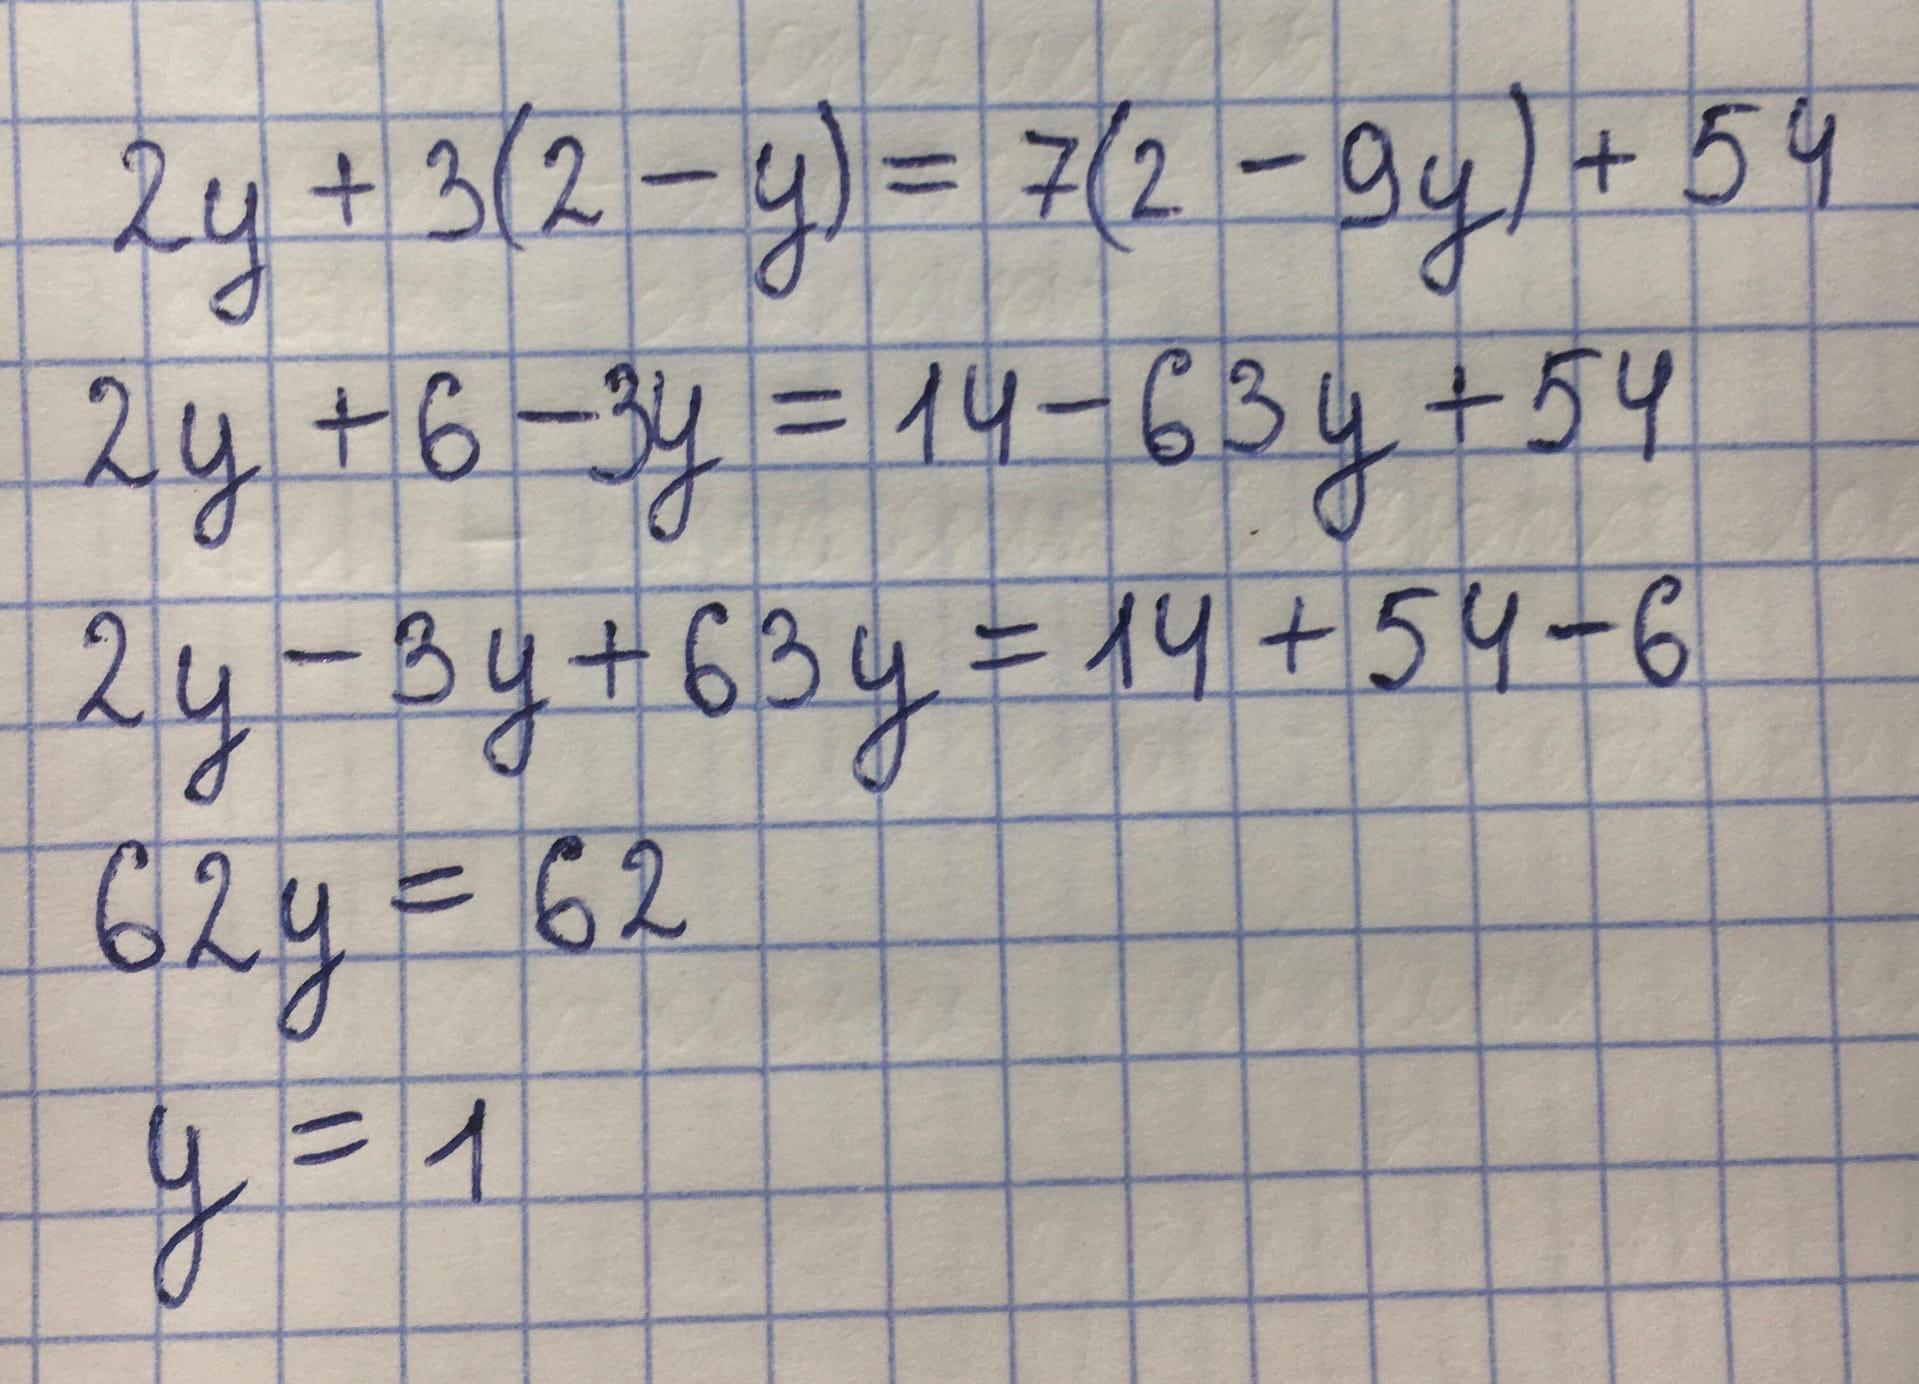 2y + 3(2 - y) = 7(2 - 9y) + 54
2y + 6 - 3y = 14 - 63y + 54
2y - 3y + 63y = 14 + 54 - 6
62y = 62
y = 1